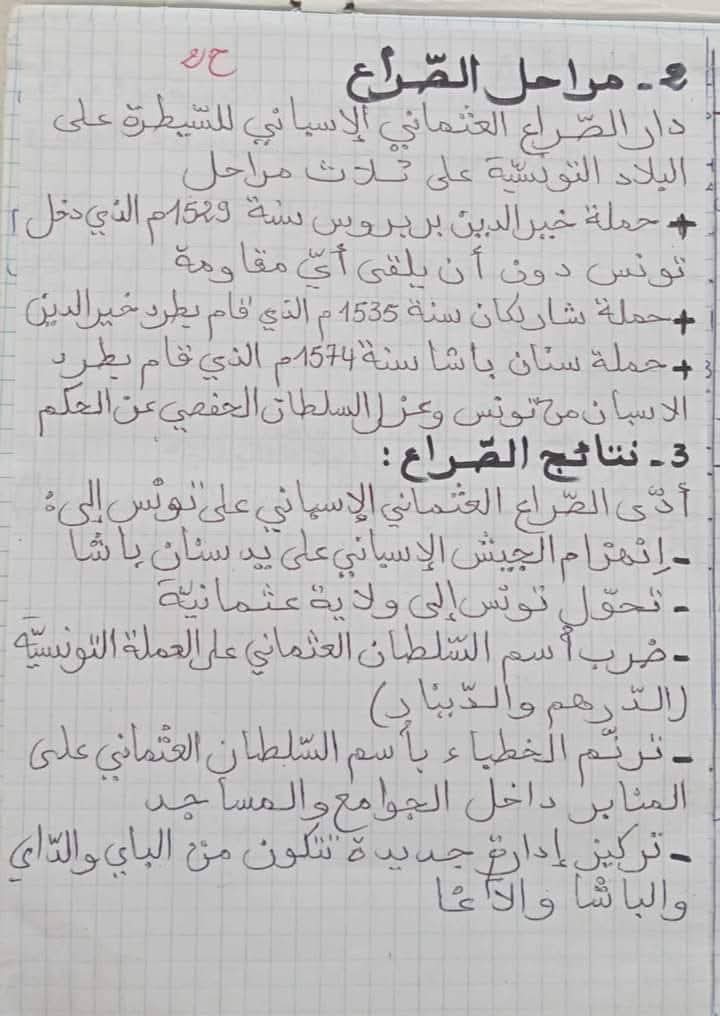 2 - مراحل الصّراع
دار الصّراع العثماني الإسباني للسّيطرة على
البلاد التونسيّة على ثلاث مراحل
+ حملة خير الدين بربروس سنة 1529م الذي دخل
تونس دون أن يلقى أيّ مقاومة
+ حملة شارلكان سنة 1535م الذي قام بطرد خير الدين
+ حملة سنان باشا سنة 1574م الذي قام بطرد
الاسبان من تونس وعزل السلطان الحفصي عن الحكم
3 - نتائج الصّراع :
أدّى الصّراع العثماني الإسباني على تونس إلى :
- إنهزام الجيش الإسباني على يد سنان باشا
- تحوّل تونس إلى ولاية عثمانيّة
- ضرب أسم السّلطان العثماني على العملة التونسيّة
(الدّرهم والدّينار)
- ترنّم الخطباء بأسم السّلطان العثماني على
المنابر داخل الجوامع والمساجد
- تركيز إدارة جديدة تتكون من الباي والدّاي
والباشا والآغا